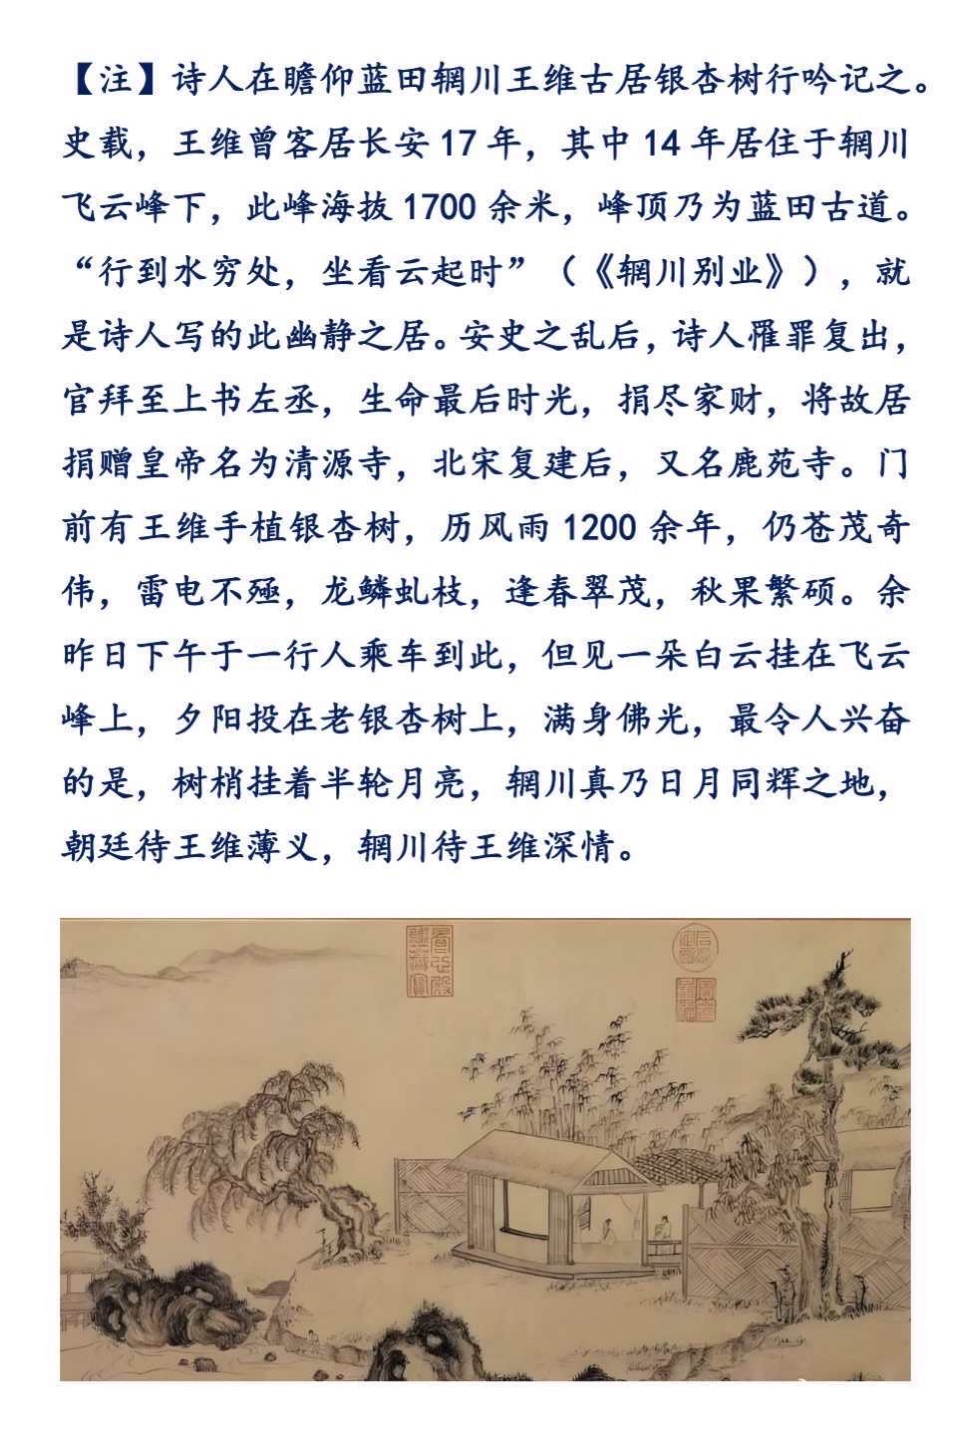 【注】诗人在瞻仰蓝田辋川王维古居银杏树行吟记之。
史载，王维曾客居长安 17 年，其中 14 年居住于辋川
飞云峰下，此峰海拔 1700 余米，峰顶乃为蓝田古道。
“行到水穷处，坐看云起时”（《辋川别业》），就
是诗人写的此幽静之居。安史之乱后，诗人罹罪复出，
官拜至上书左丞，生命最后时光，捐尽家财，将故居
捐赠皇帝名为清源寺，北宋复建后，又名鹿苑寺。门
前有王维手植银杏树，历风雨 1200 余年，仍苍茂奇
伟，雷电不殛，龙鳞虬枝，逢春翠茂，秋果繁硕。余
昨日下午于一行人乘车到此，但见一朵白云挂在飞云
峰上，夕阳投在老银杏树上，满身佛光，最令人兴奋
的是，树梢挂着半轮月亮，辋川真乃日月同辉之地，
朝廷待王维薄义，辋川待王维深情。